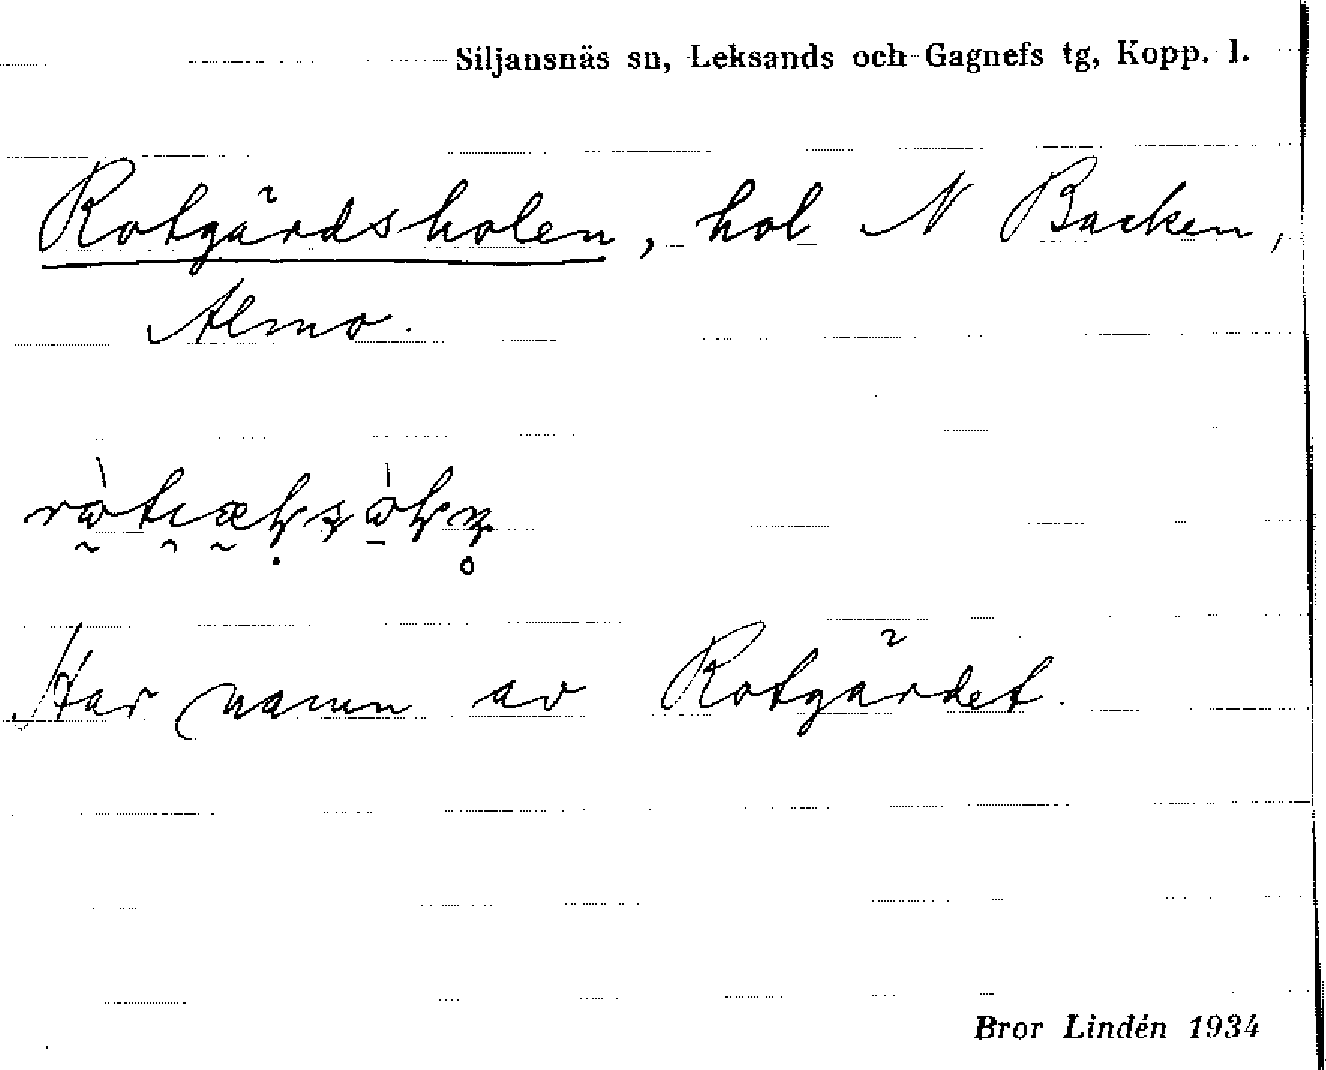 Siljansnäs sn, Leksands och Gagnefs tg, Kopp. l.
Rotgärdsholen, hol N Backen,
Almo.
Har namn av Rotgärdet.
Bror Lindén 1934